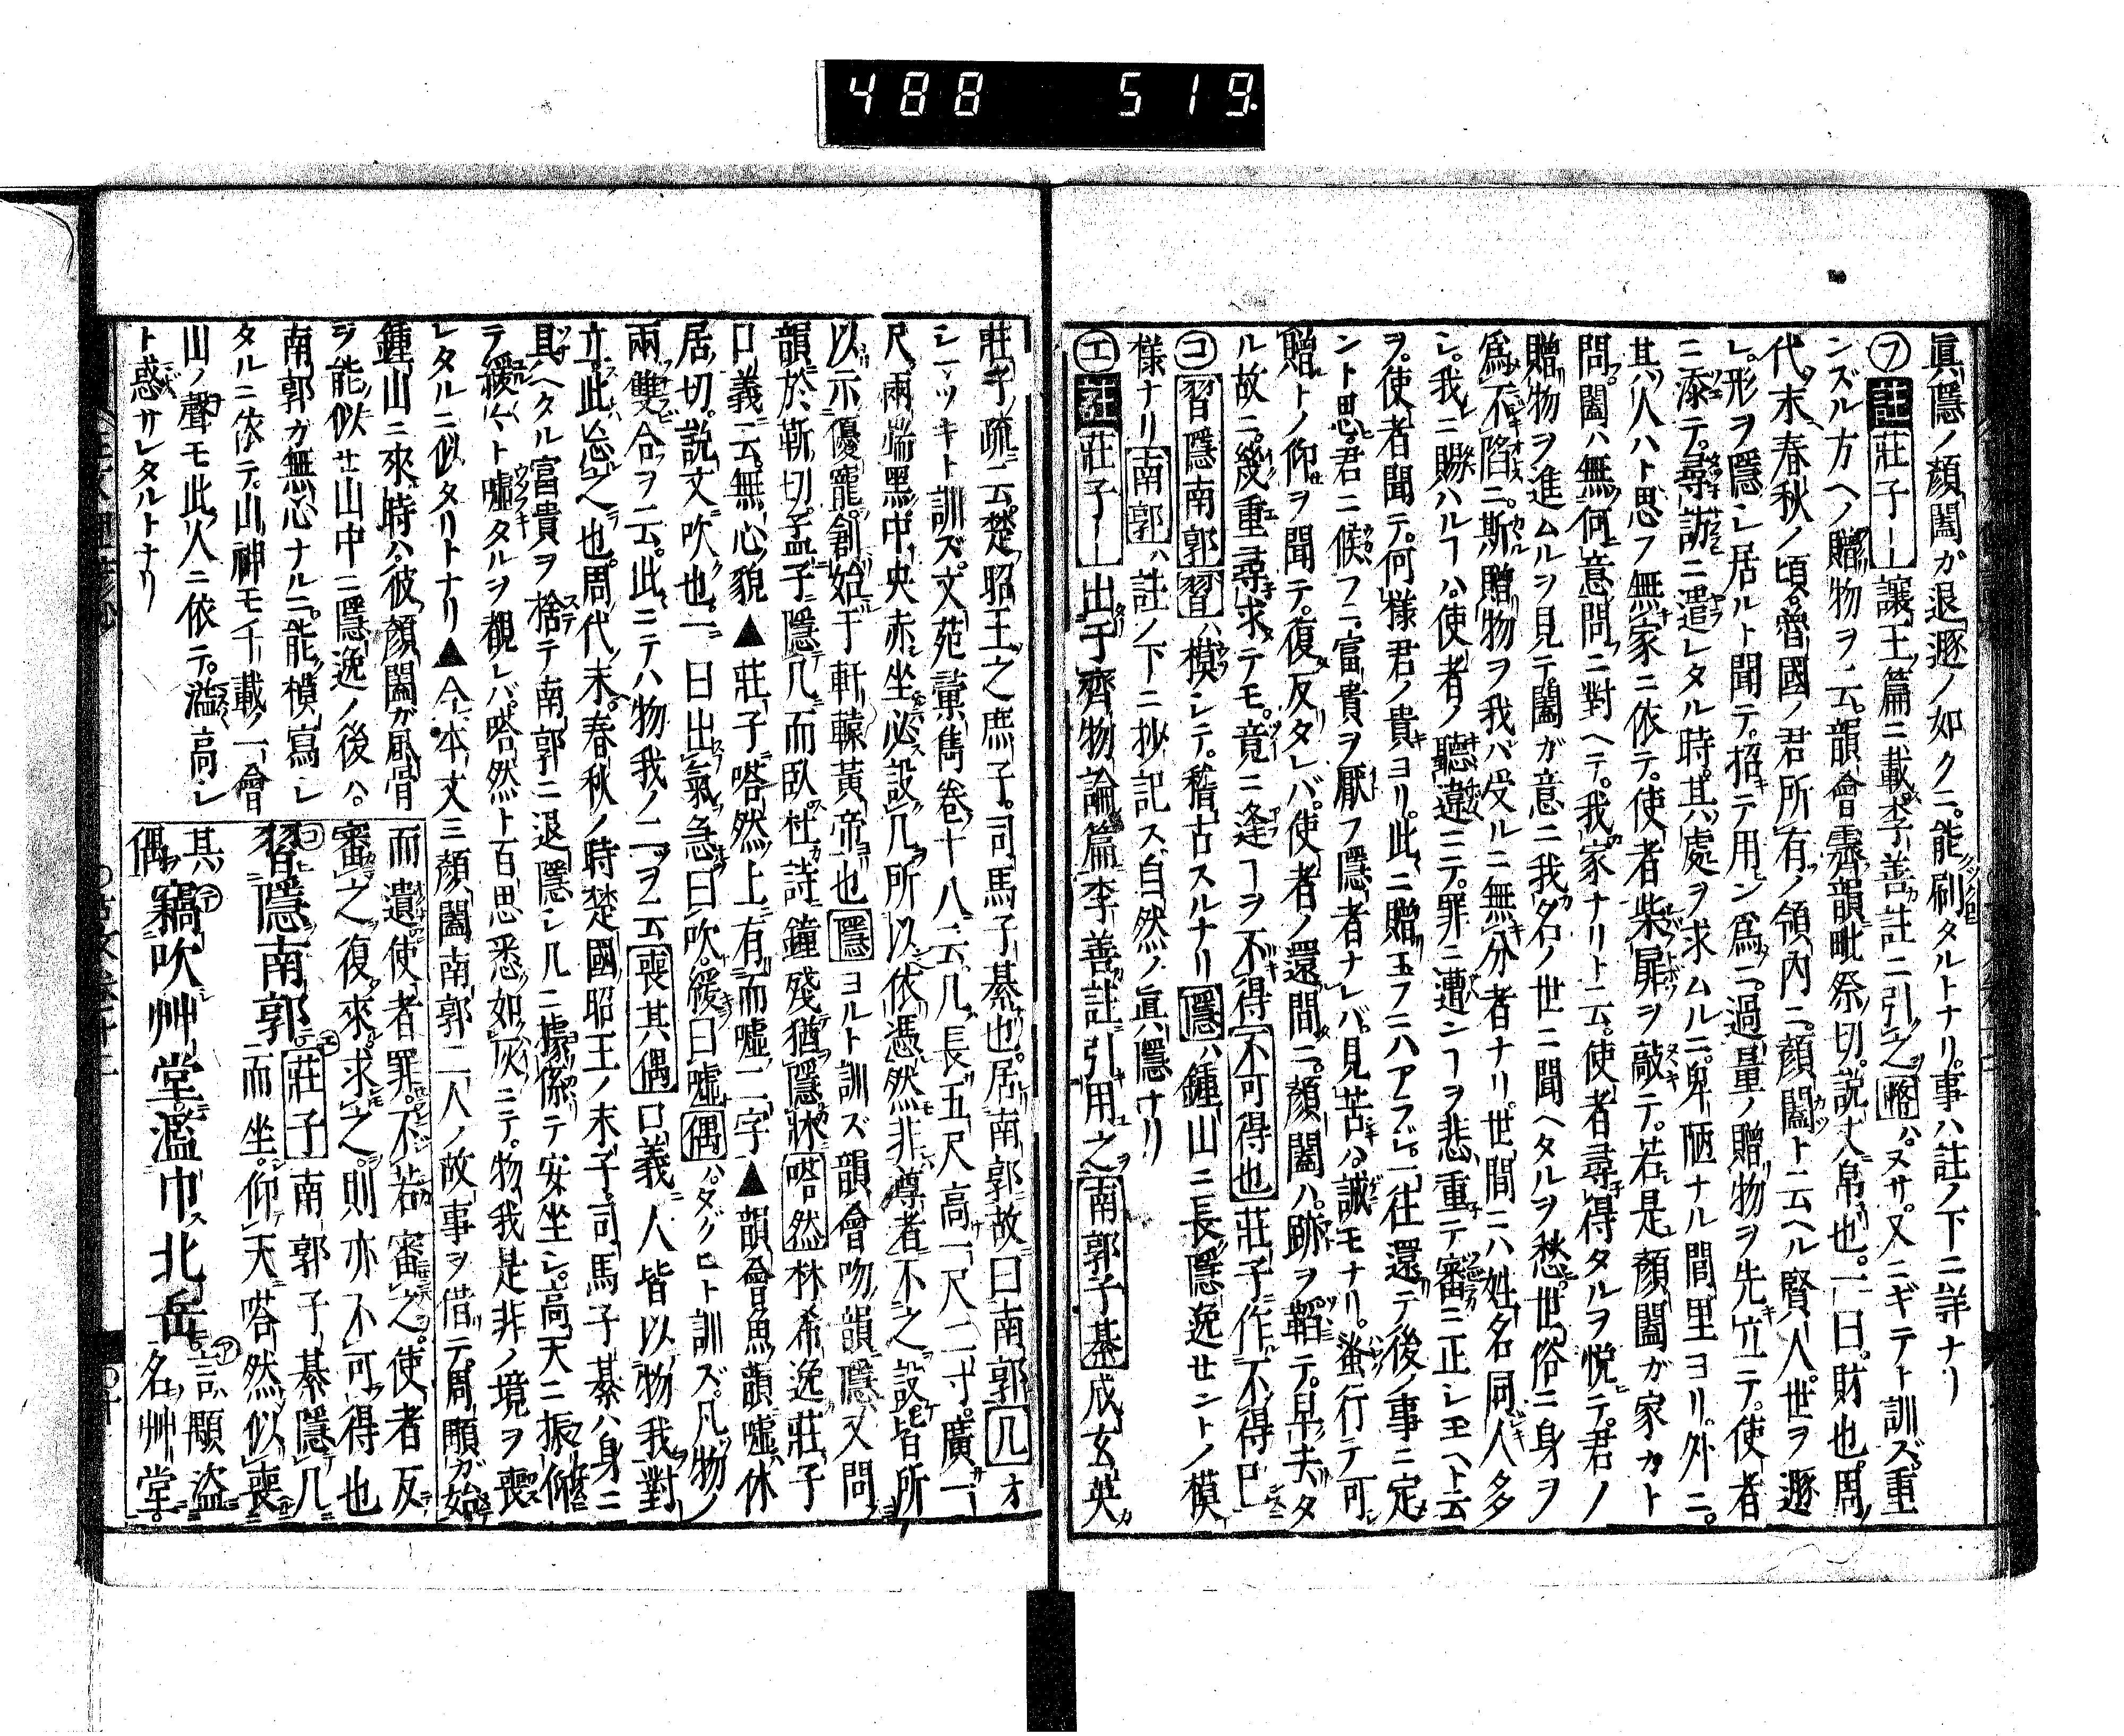 488 519.
眞隱ノ顏闔ガ退遯ノ如クニ。能刷タルトナリ。事ハ註ノ下ニ詳ナリ
㋫註莊子――讓王篇ニ載李善註ニ引之幣ハ。ヌサ。又ニギテト訓ズ。重
ンズル方ヘノ贈物ヲ云。韻會霽韻毗祭切。説文帛也。一曰。財也。周ノ
代ノ末春秋ノ頃魯國ノ君所有ノ領内ニ。顏闔ト云ヘル賢人。世ヲ遯
レ。形ヲ隱シ居ルト聞テ。招テ用ン爲ニ。過量ノ贈物ヲ先立テ。使者
ニ添テ。尋訪ニ遣レタル時。其處ヲ求ムルニ。卑陋ナル閭里ヨリ。外ニ。
其人ハト思フ無家ニ依テ。使者柴扉ヲ敲テ。若是顏闔ガ家カト
問。闔ハ無何意問ニ對ヘテ。我家ナリト云。使者尋得タルヲ悦テ。君ノ
贈物ヲ進ムルヲ見テ。闔ガ意ニ我名ノ世ニ聞ヘタルヲ愁。世俗ニ身ヲ
爲不陷ニ。斯贈物ヲ我バ受ルニ無分者ナリ。世間ニハ姓名同人多
シ。我ニ賜ハルヿハ。使者ノ聽違ニテ。罪ニ遭ンヿヲ悲。重テ審ニ正シ玉ヘト云
ヲ。使者聞テ。何樣君ノ貴ヨリ。此ニ贈玉フニハアラレ。一往還テ後ノ事ニ定
ント思。君ニ候フニ。富貴ヲ厭フ隱者ナレバ。見苦ハ。誠モナリ。蚤行テ可
贈トノ仰ヲ聞テ。復反タレバ。使者ノ還間ニ。顏闔ハ。跡ヲ韜テ。早失タ
ル故ニ。幾重尋求テモ。竟ニ逢ヿヲ不得不可得也莊子作不得已
㋙習隱南郭習ハ模シテ。稽古スルナリ隱ハ鍾山ニ長隱逸セントノ模
樣ナリ南郭ハ註ノ下ニ抄記ス自然ノ眞隱ナリ
㋓註莊子――出于齊物論篇李善註引用之南郭子綦成玄英
莊子疏云。楚昭王之庶子。司馬子綦也。居南郭故曰南郭几オ
シマヅキト訓ズ。文苑彙雋卷十八云。几長五尺高一尺二寸。廣一
尺。兩端黑。中央赤坐必設几所以依憑然非尊者不之設皆所
以示優寵。創始于軒轅黃帝也隱ヨルト訓ズ韻會吻韻隱又問
韻於靳切。孟子隱几而臥。杜詩鐘殘猶隱牀嗒然林希逸莊子
口義云。無心貌▲莊子嗒然上有而噓二字▲韻會魚韻噓休
居切。説文吹也。一曰出氣急曰吹。緩曰噓偶ハ。タグヒト訓ズ。凡物ノ
兩雙合ヲ云。此ニテハ物我ノ二ヲ云喪其偶口義人皆以物我對
立。此忘之也。周代ノ末。春秋ノ時楚國昭王ノ末子。司馬子綦ハ身ニ
具ヘタル富貴ヲ捨テ南郭ニ退隱シ几ニ據係テ安坐シ。高天ニ振仰
テ緩々ト噓タルヲ覩レバ。嗒然ト百思悉如灰ニテ。物我是非ノ境ヲ喪
レタルニ似タリトナリ▲今本文ニ顏闔南郭二人ノ故事ヲ借テ。周顒ガ始
鍾山ニ來時ハ。彼顏闔ガ風骨
ヲ能似セ山中ニ隱逸ノ後ハ。
南郭ガ無心ナルニ。能模寫シ
タルニ依テ。山神モ千載ノ一會
山ノ聲モ此人ニ依テ。滋高シ
ト惑サレタルトナリ
而遺使者罪。不若審之。使者反
審之復來求之。則亦不可得也
㋙習隱南郭㋓莊子南郭子綦隱几
而坐。仰天嗒然似喪
其偶㋢竊吹艸堂濫巾北岳㋐言顒盜
名艸堂。